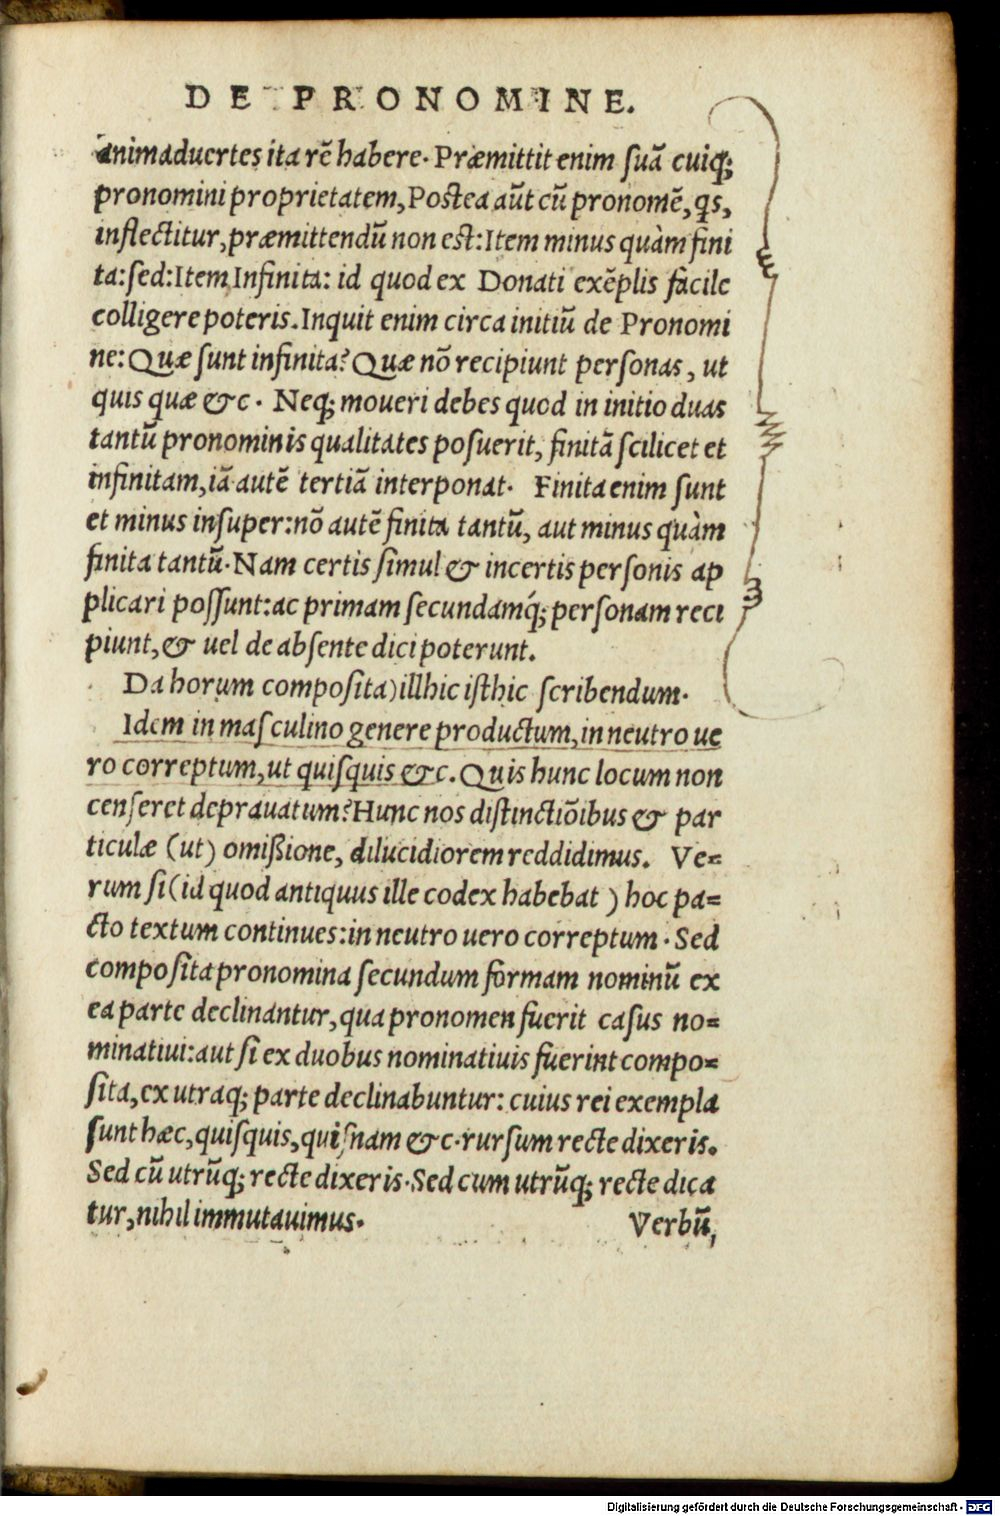 DE PRONOMINE.
animaduertes ita rē habere. Præmittit enim suā cuiq;
pronomini proprietatem, Postea aūt cū pronomē, qs,
inflectitur, præmittendū non est: Item minus quàm fini
ta: sed: Item Infinita: id quod ex Donati exēplis facile
colligere poteris. Inquit enim circa initiū de Pronomi
ne: Quæ sunt infinita? Quæ nō recipiunt personas, ut
quis quæ &c. Neq; moueri debes quod in initio duas
tantū pronominis qualitates posuerit, finitā scilicet et
infinitam, iā autē tertiā interponat. Finita enim sunt
et minus insuper: nō autē finita tantū, aut minus quàm
finita tantū. Nam certis simul & incertis personis ap
plicari possunt: ac primam secundamq́; personam reci
piunt, & uel de absente dici poterunt.
Da horum composita) illhic isthic scribendum.
Idem in masculino genere productum, in neutro ue
ro correptum, ut quisquis &c. Quis hunc locum non
censeret deprauatum? Hunc nos distinctiōibus & par
ticulæ (ut) omißione, dilucidiorem reddidimus. Ve=
rum si (id quod antiquus ille codex habebat) hoc pa=
cto textum continues: in neutro uero correptum. Sed
composita pronomina secundum formam nominū ex
ea parte declinantur, qua pronomen fuerit casus no=
minatiui: aut si ex duobus nominatiuis fuerint compo=
sita, ex utraq; parte declinabuntur: cuius rei exempla
sunt hæc, quisquis, quisnam &c. rursum recte dixeris.
Sed cū utrūq; recte dixeris. Sed cum utrūq; recte dica
tur, nihil immutauimus.
Verbū,
Digitalisierung gefördert durch die Deutsche Forschungsgemeinschaft - DFG